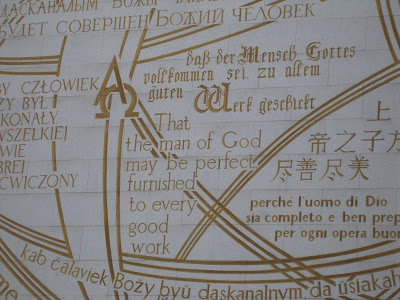 ДАСКАНАЛЫМ БОЖЫ
БУДЕТ СОВЕРШЕН БОЖИЙ ЧЕЛОВЕК
daß der Mensch Gottes
vollkommen sei, zu allem
guten Werk geschickt
BY CZŁOWIEK
ŻY BYŁ
KONAŁY
WSZELKIEJ
AWIE
BREJ
ĆWICZONY
ΑΩ
That
the man of God
may be perfect,
furnished
to every
good
work
上
帝之子方
尽善尽美
perché l'uomo di Dio
sia completo e ben prep
per ogni opera buon
kab čalaviek Božy byŭ daskanalnym, da ŭsiakah